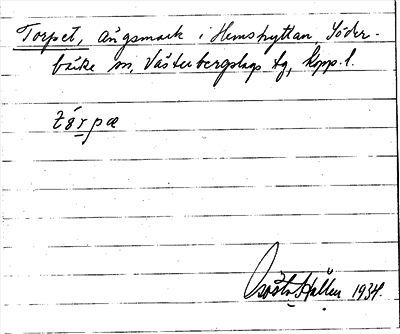 Torpet, ängsmark i Hemshyttan Söder-
bärke sn, Västerbergslags tg, Kopp. l.
tårpæ
Hallen 1934.